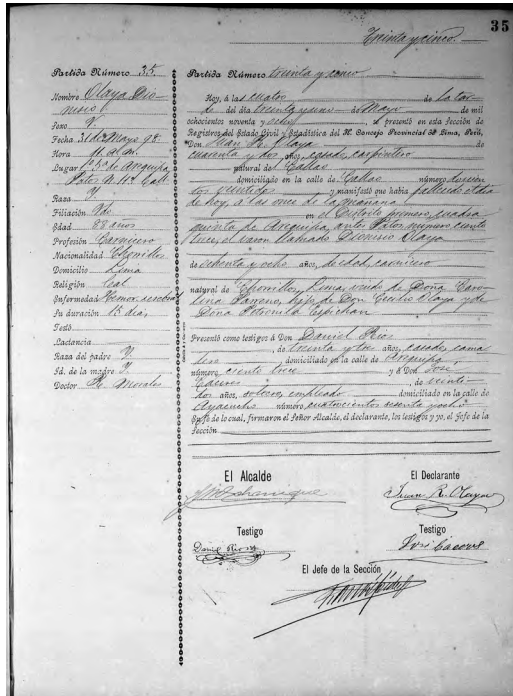 35
Treinta y cinco.
Partida Número 35.
Nombre Olaya Dio-
nisio
Sexo V.
Fecha 31 de Mayo 98.
Hora 11 a.m.
Lugar 1º 5ª de Arequipa
Patos Nº 113
Raza Y.
Filiación
Edad 88 años
Profesión Carnicero
Nacionalidad Chorrillos
Domicilio Lima
Religión Cat.
Enfermedad cerebral
Su duración 15 días
Testó
Lactancia
Raza del padre Y.
Id. de la madre Y.
Doctor M. Morales
Partida Número treinta y cinco
Hoy, á las cuatro de la tar-
de del día treinta y uno de Mayo de mil
ochocientos noventa y ocho, se presentó en esta Sección de
Registros del Estado Civil y Estadística del H. Concejo Provincial de Lima, Perú,
Don Juan R. Olaya de
cuarenta y dos años, casado, carpintero
natural de Callao
domiciliado en la calle de Callao número
y manifestó que había fallecido el día
de hoy, á las once de la mañana
en el Distrito primero, cuadra
quinta de Arequipa, antes Patos, número ciento
trece, el varon llamado Dionisio Olaya
de ochenta y ocho años, de edad, carnicero
natural de Chorrillos, Lima, viudo de Doña Caro-
lina Parreno, hijo de Don Cecilio Olaya y de
Doña Petronila
Presentó como testigos á Don Daniel Rios
, de treinta y tres años, casado, cama-
lero, domiciliado en la calle de Arequipa
número ciento trece y á Don José
Cáceres, de veinti-
dos años, soltero, empleado domiciliado en la calle de
Ayacucho número cuatrocientos sesenta y ocho
En fe de lo cual, firmaron el Señor Alcalde, el declarante, los testigos y yo, el Jefe de la
Sección
El Alcalde
El Declarante
Juan R. Olaya
Testigo
Testigo
Daniel Rios
José Cáceres
El Jefe de la Sección